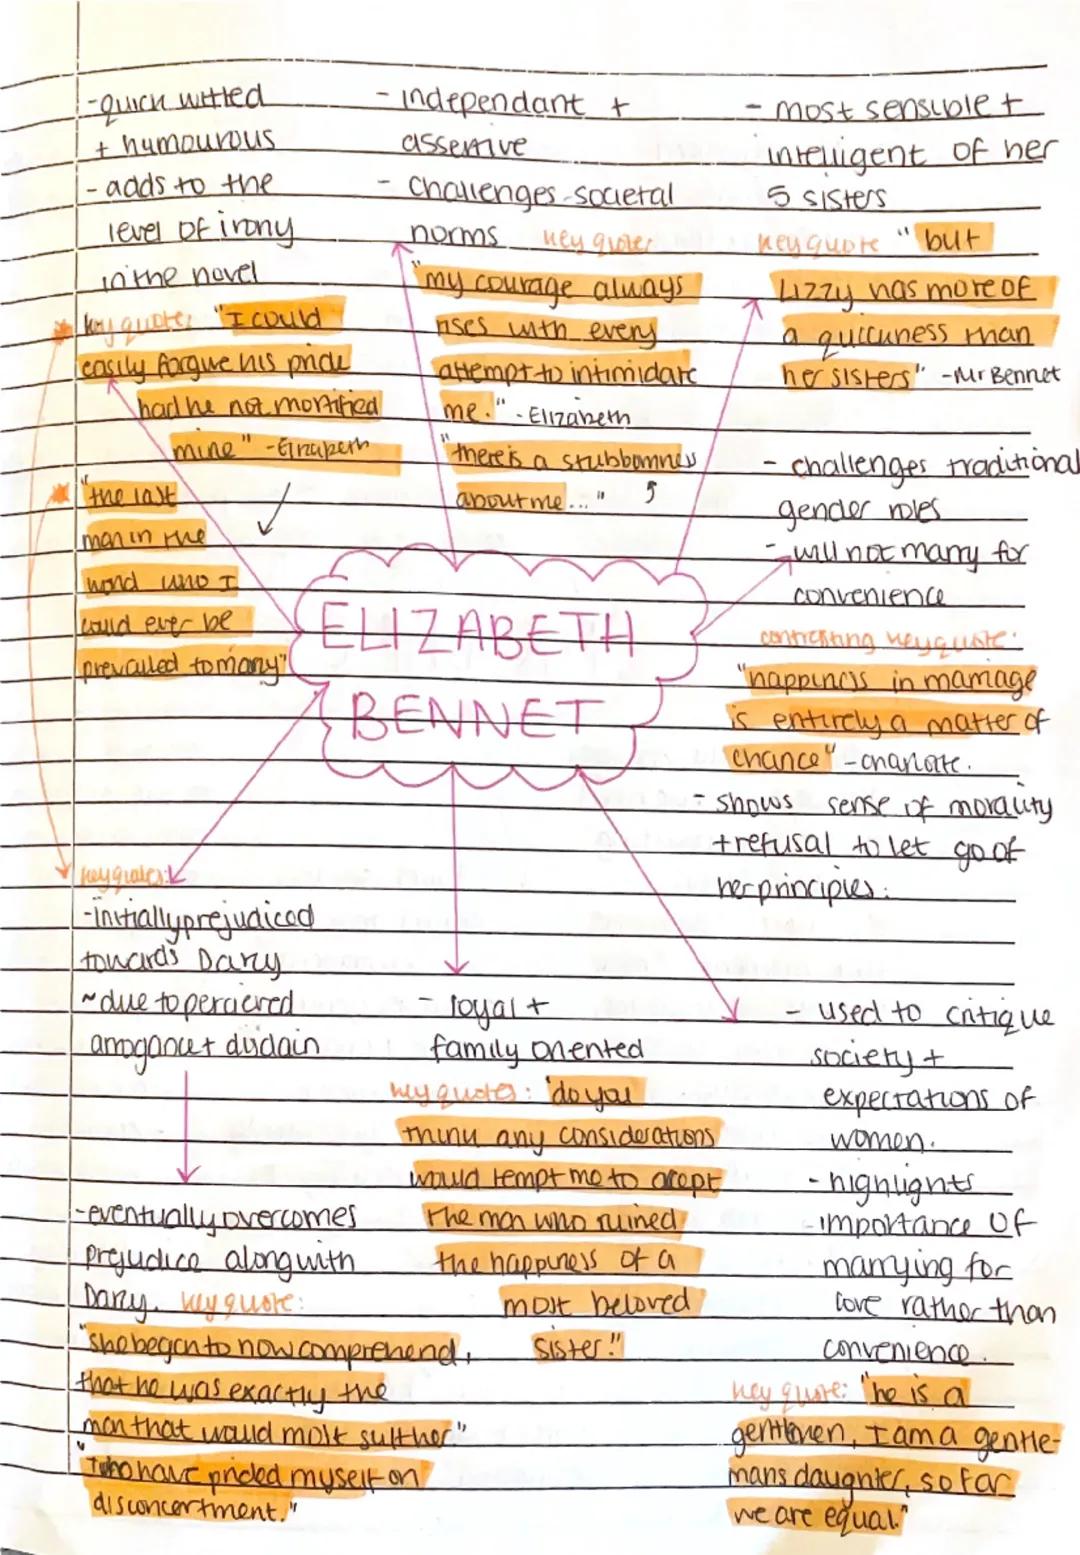 -quick witted
+ humourous
- adds to the
level of irony
in the novel
key quote: "I could
easily forgive his pride
had he not mortified
mine" -Elizabeth
"the last
man in the
world who I
could ever be
prevailed to marry"
- independant +
assertive
- challenges societal
norms key quote:
"my courage always
rises with every
attempt to intimidate
me." - Elizabeth
"there is a stubbornness
about me..."
- most sensible +
intelligent of her
5 sisters
key quote "but
Lizzy has more of
a quickness than
her sisters" -Mr Bennet
- challenges traditional
gender roles
- will not marry for
convenience
contrasting key quote:
"happiness in marriage
is entirely a matter of
chance" - charlotte.
- shows sense of morality
+ refusal to let go of
her principles.
ELIZABETH
BENNET
key quotes:
-initially prejudiced
towards Darcy
~ due to percieved
arrogance + disdain
-eventually overcomes
prejudice along with
Darcy. key quote:
"she began to now comprehend,
that he was exactly the
man that would most suit her"
"I who have prided myself on
disconcertment."
- loyal +
family oriented
key quotes: "do you
think any considerations
would tempt me to accept
the man who ruined
the happiness of a
most beloved
sister."
- used to critique
society +
expectations of
women.
- highlights
- importance of
marrying for
love rather than
convenience.
key quote: "he is a
gentlemen, I am a gentle-
mans daughter, so far
we are equal."